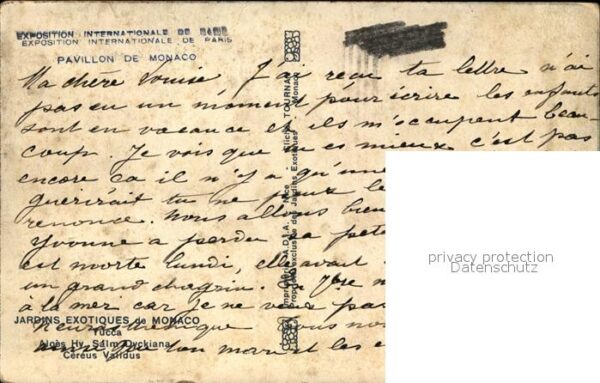 EXPOSITION INTERNATIONALE DE PARIS
EXPOSITION INTERNATIONALE DE PARIS
PAVILLON DE MONACO
Ma chère Louise J'ai reçu ta lettre n'ai
pas eu un moment pour écrire les enfants
sont en vacance et ils m'occupent beau-
coup. Je vois que tu es mieux c'est pas
encore ça il n'y a qu'une
guérirait tu ne peux le
renonce. Nous allons bien
Yvonne a perdu sa pet
est morte lundi, elle avait
un grand chagrin.
à la mer car je ne veux pas
JARDINS EXOTIQUES de MONACO
Yucca
Aloès Hy. Salm Dyckiana
Cereus Validus
neurasthénique vous nos
Imprimerie A.D.I.A. Nice
Cliché TOURNAY
Propriété exclusive des Jardins Exotiques Monaco
privacy protection
Datenschutz